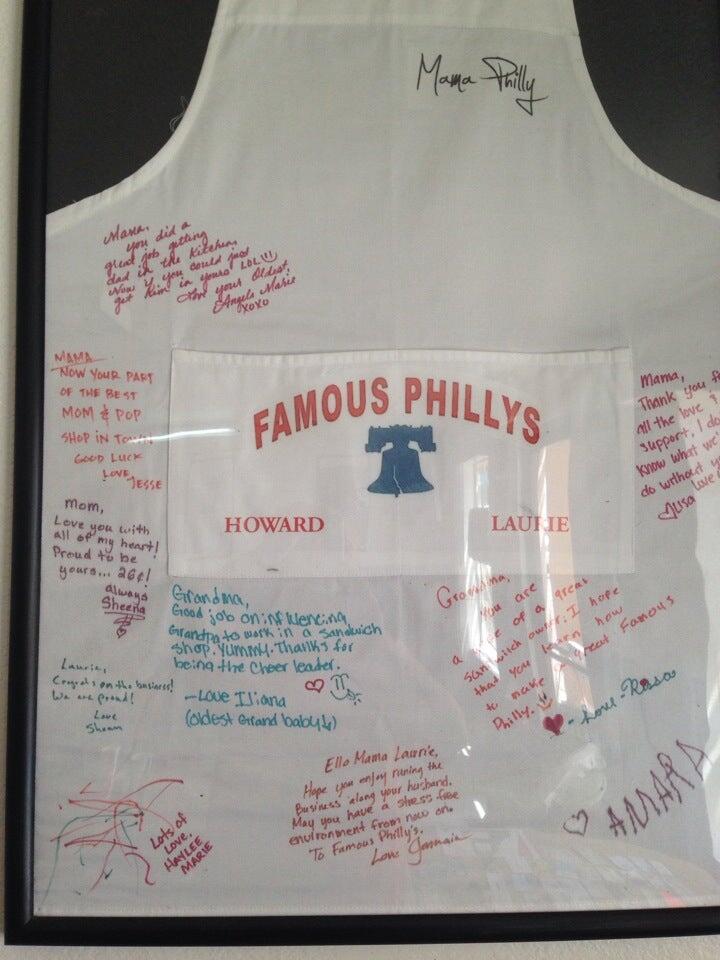 Mama Philly
Mama,
you did a
great job getting
dad in the kitchen,
Now if you could just
get Kim in yours LOL
Love your Oldest,
Angela Marie
XOXO
MAMA
NOW YOUR PART
OF THE BEST
MOM & POP
SHOP IN TOWN
GOOD LUCK
LOVE,
JESSE
FAMOUS PHILLYS
HOWARD LAURIE
Mama,
Thank you
all the love &
support, I do
know what we
do without
Lisa
Mom,
Love you with
all of my heart!
Proud to be
yours... 26¢!
always
Sheena
Grandma,
Good job on influencing
Grandpa to work in a sandwich
shop. YUMMY. Thanks for
being the cheer leader.
-Love Iliana
(oldest Grand baby)
Grandma,
you are
a wife of a great
sandwich owner. I hope
that you learn how
to make a great Famous
Philly.
-Love-Rosa
Laurie,
Congrats on the business!
We are proud!
Love
Ello Mama Laurie,
Hope you enjoy runing the
Business along your husband.
May you have a stress free
environment from now on.
To Famous Philly's.
Love Jermain
LOTS OF
LOVE,
HAYLEE
MARIE
AMARA